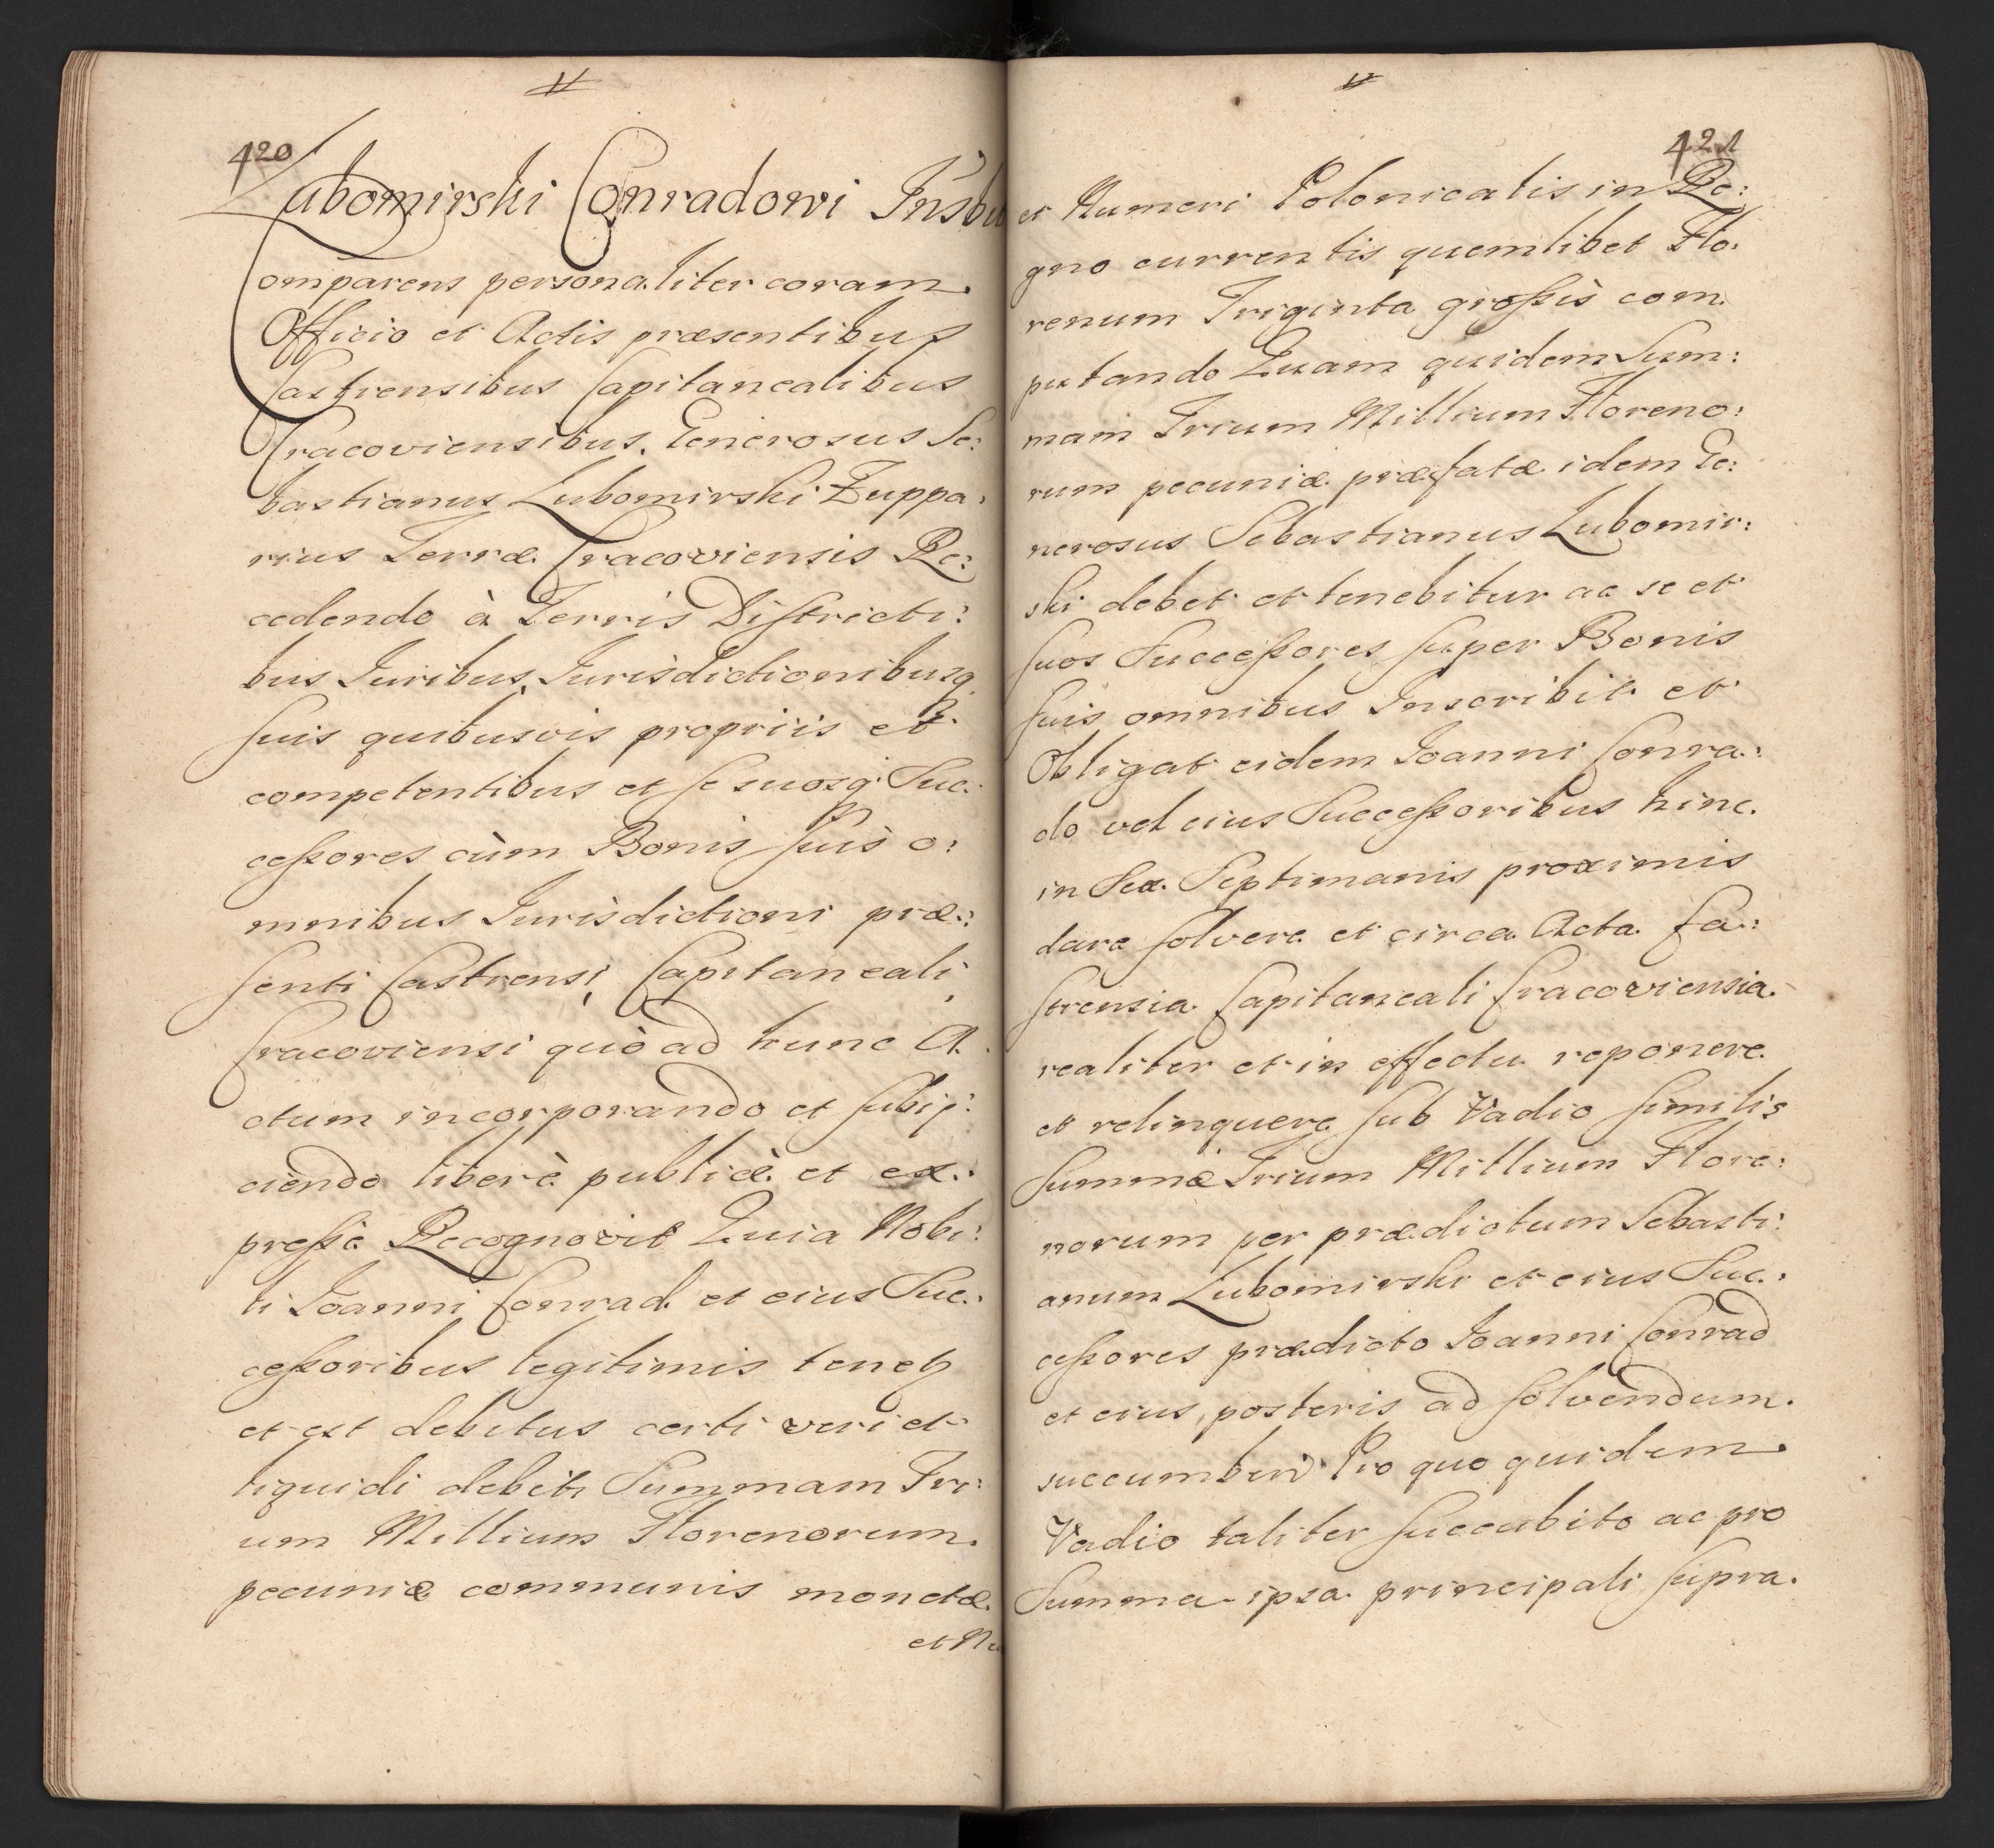 420
Lubomirski Conradowi Insbu
Comparens personaliter coram
Officio et Actis præsentibus
Castrensibus Capitanealibus
Cracoviensibus. Generosus Se:
bastianus Lubomirski Zuppa:
rius Terræ Cracoviensis Re:
cedendo à Terris Districti:
bus Iuribus, Iurisdictionibusq
suis quibusvis propriis et
competentibus et se suosq Suc:
cessores cùm Bonis suis o:
mnibus Iurisdictioni præ:
senti Castrensi, Capitaneali,
Cracoviensi quò ad hunc A
ctum incorporando et subij:
ciendo liberè publicè et ex:
pressè Recognovit Quia Nobi:
li Ioanni Conrad et eius Suc:
cessoribus legitimis tenetz
et est debitus certi veri et
liquidi debiti Summam Tri:
um Millium Florenorum
pecuniæ communis monetæ
et Nu
421
et Numeri Polonicalis in Re:
gno currentis quemlibet Flo:
renum Triginta grossis com
putando Quam quidem Sum:
mam Trium Millium Floreno:
rum pecuniæ præfatæ idem Ge:
nerosus Sebastianus Lubomir:
ski debet et tenebitur ac se et
suos Successores super Bonis
suis omnibus Inscribit et
Obligat eidem Ioanni Conra:
do vel eius Successoribus hinc
in Sex Septimanis proximis
dare solvere et circa Acta Ca:
strensia Capitaneali Cracoviensia
realiter et in effectu reponere
et relinquere sub Vadio similis
summæ Trium Millium Flore:
norum per prædictum Sebasti:
anum Lubomirski et eius Suc:
cessores prædicto Ioanni Conrad
et eius posteris ad solvendum
succumben Pro quo quidem
Vadio taliter succubito ac pro
Summa ipsa principali supra